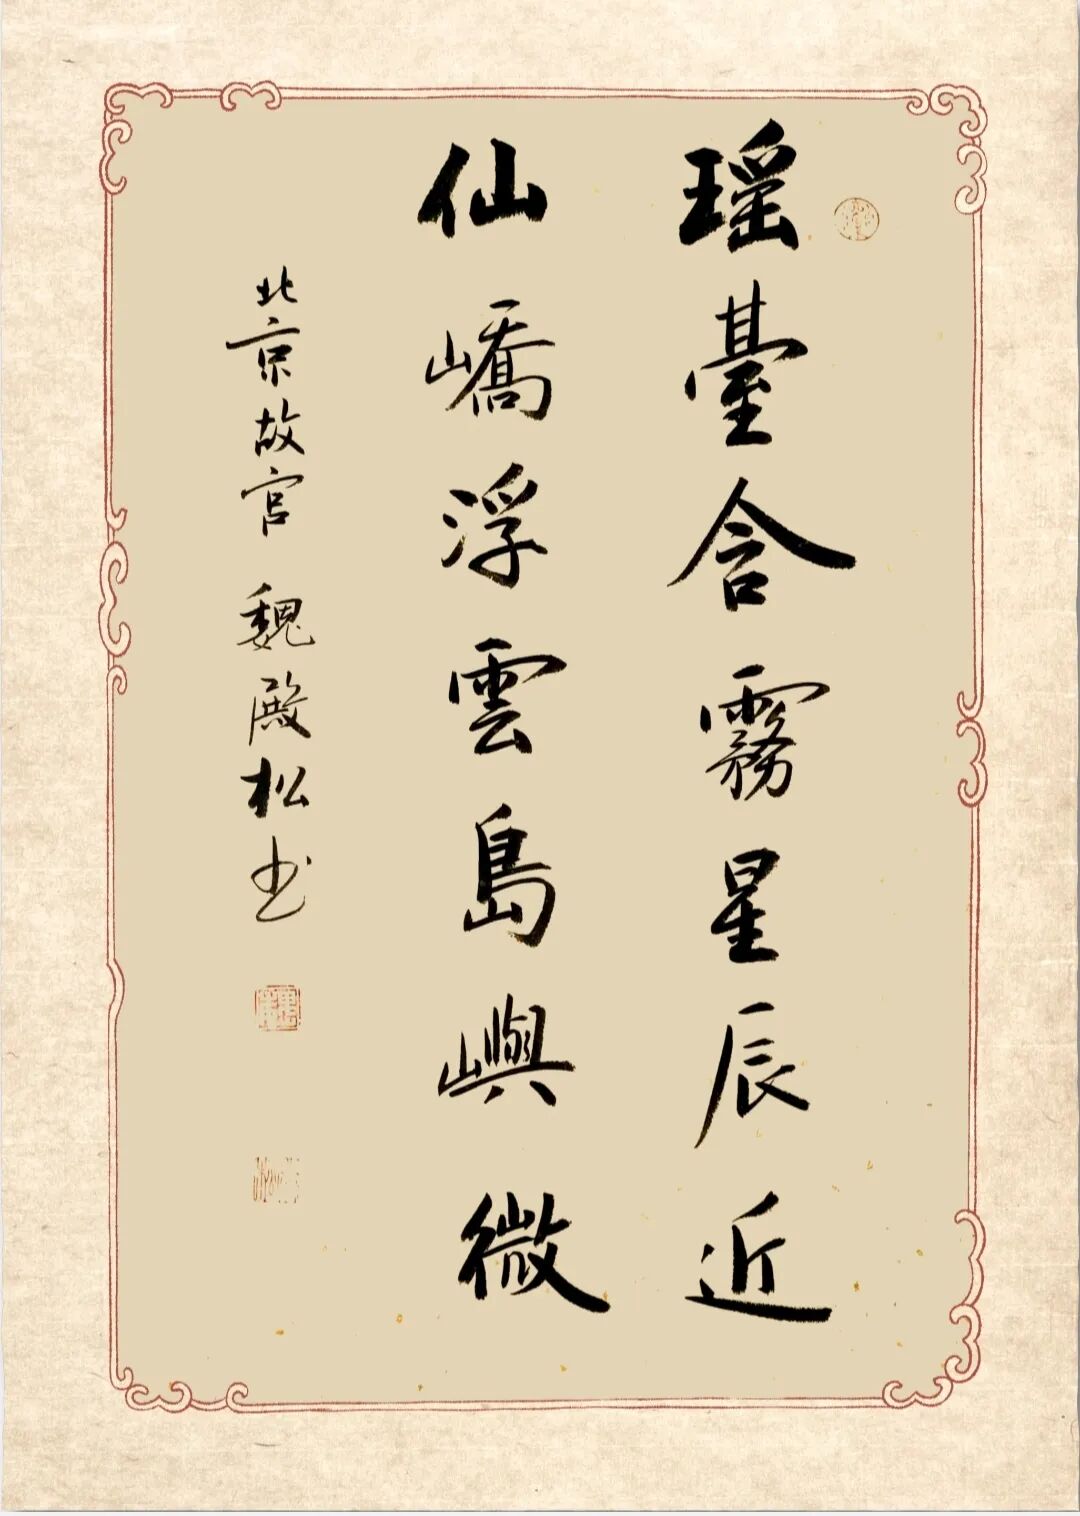 瑶臺含霧星辰近
仙嶠浮雲島嶼微
北京故宫 魏殿松书